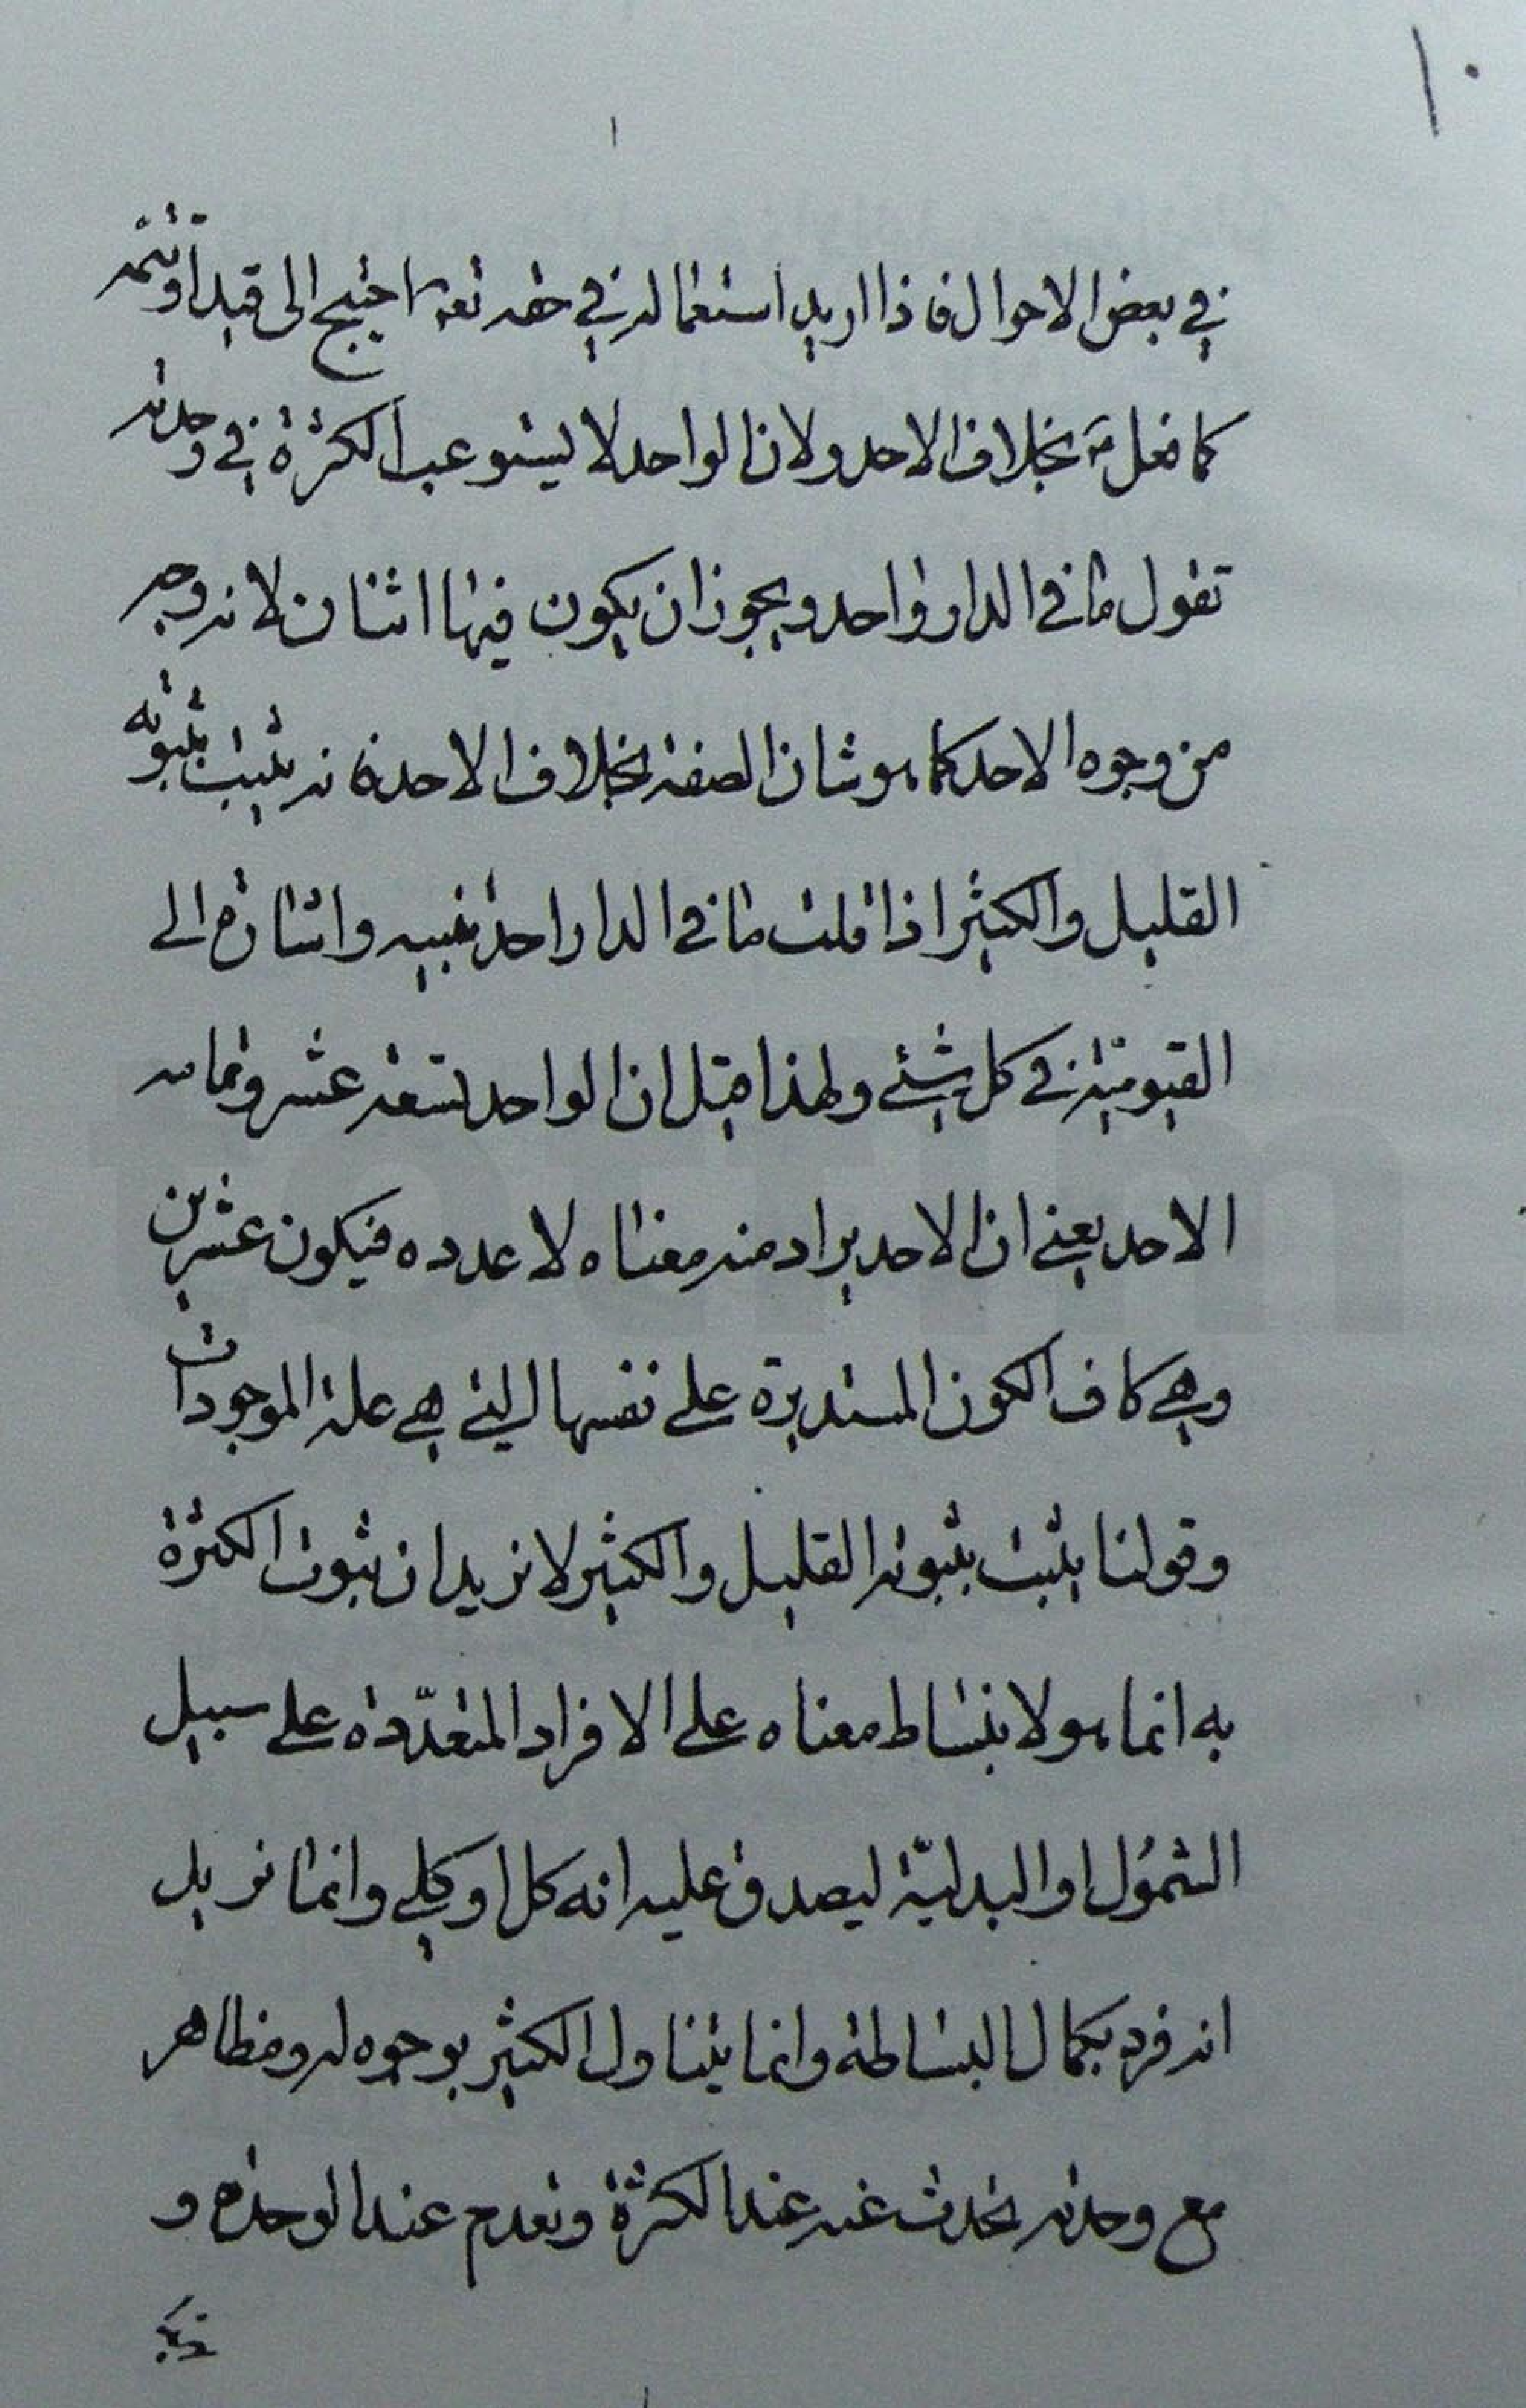 ١٠
في بعض الاحوال فاذا اريد استعماله في حقه تعالى احتيج الى قيد او تتمه
كما فعل ع بخلاف الاحد ولان الواحد لا يستوعب الكثرة في وحدته
تقول ما في الدار واحد ويجوز ان يكون فيها اثنان لانه وجه
من وجوه الاحد كما هو شان الصفة بخلاف الاحد فانه يثبت بثبوته
القليل والكثير اذا قلت ما في الدار احد ففيه واشارة الى
القيومية في كل شئ ولهذا قيل ان الواحد تسعة عشر وتمامه
الاحد يعني ان الاحد يراد منه معناه لا عدده فيكون عشرين
وهي كاف الكون المستديرة على نفسها التي هي علة الموجودات
وقولنا يثبت بثبوته القليل والكثير لا نريد ان ثبوت الكثرة
به انما هو لانبساط معناه على الافراد المتعددة على سبيل
الشمول او البدلية ليصدق عليه انه كل او كلي وانما نريد
انه فرد بكمال البساطة وانما يتناول الكثير بوجوه له ومظاهر
مع وحدته تحدث عنه عند الكثرة وتعدم عند الوحدة و